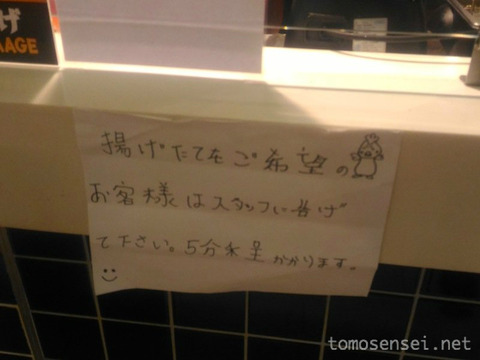 げ
AGE
揚げたてをご希望の
お客様はスタッフに告げ
て下さい。5分程かかります。
tomosensei.net